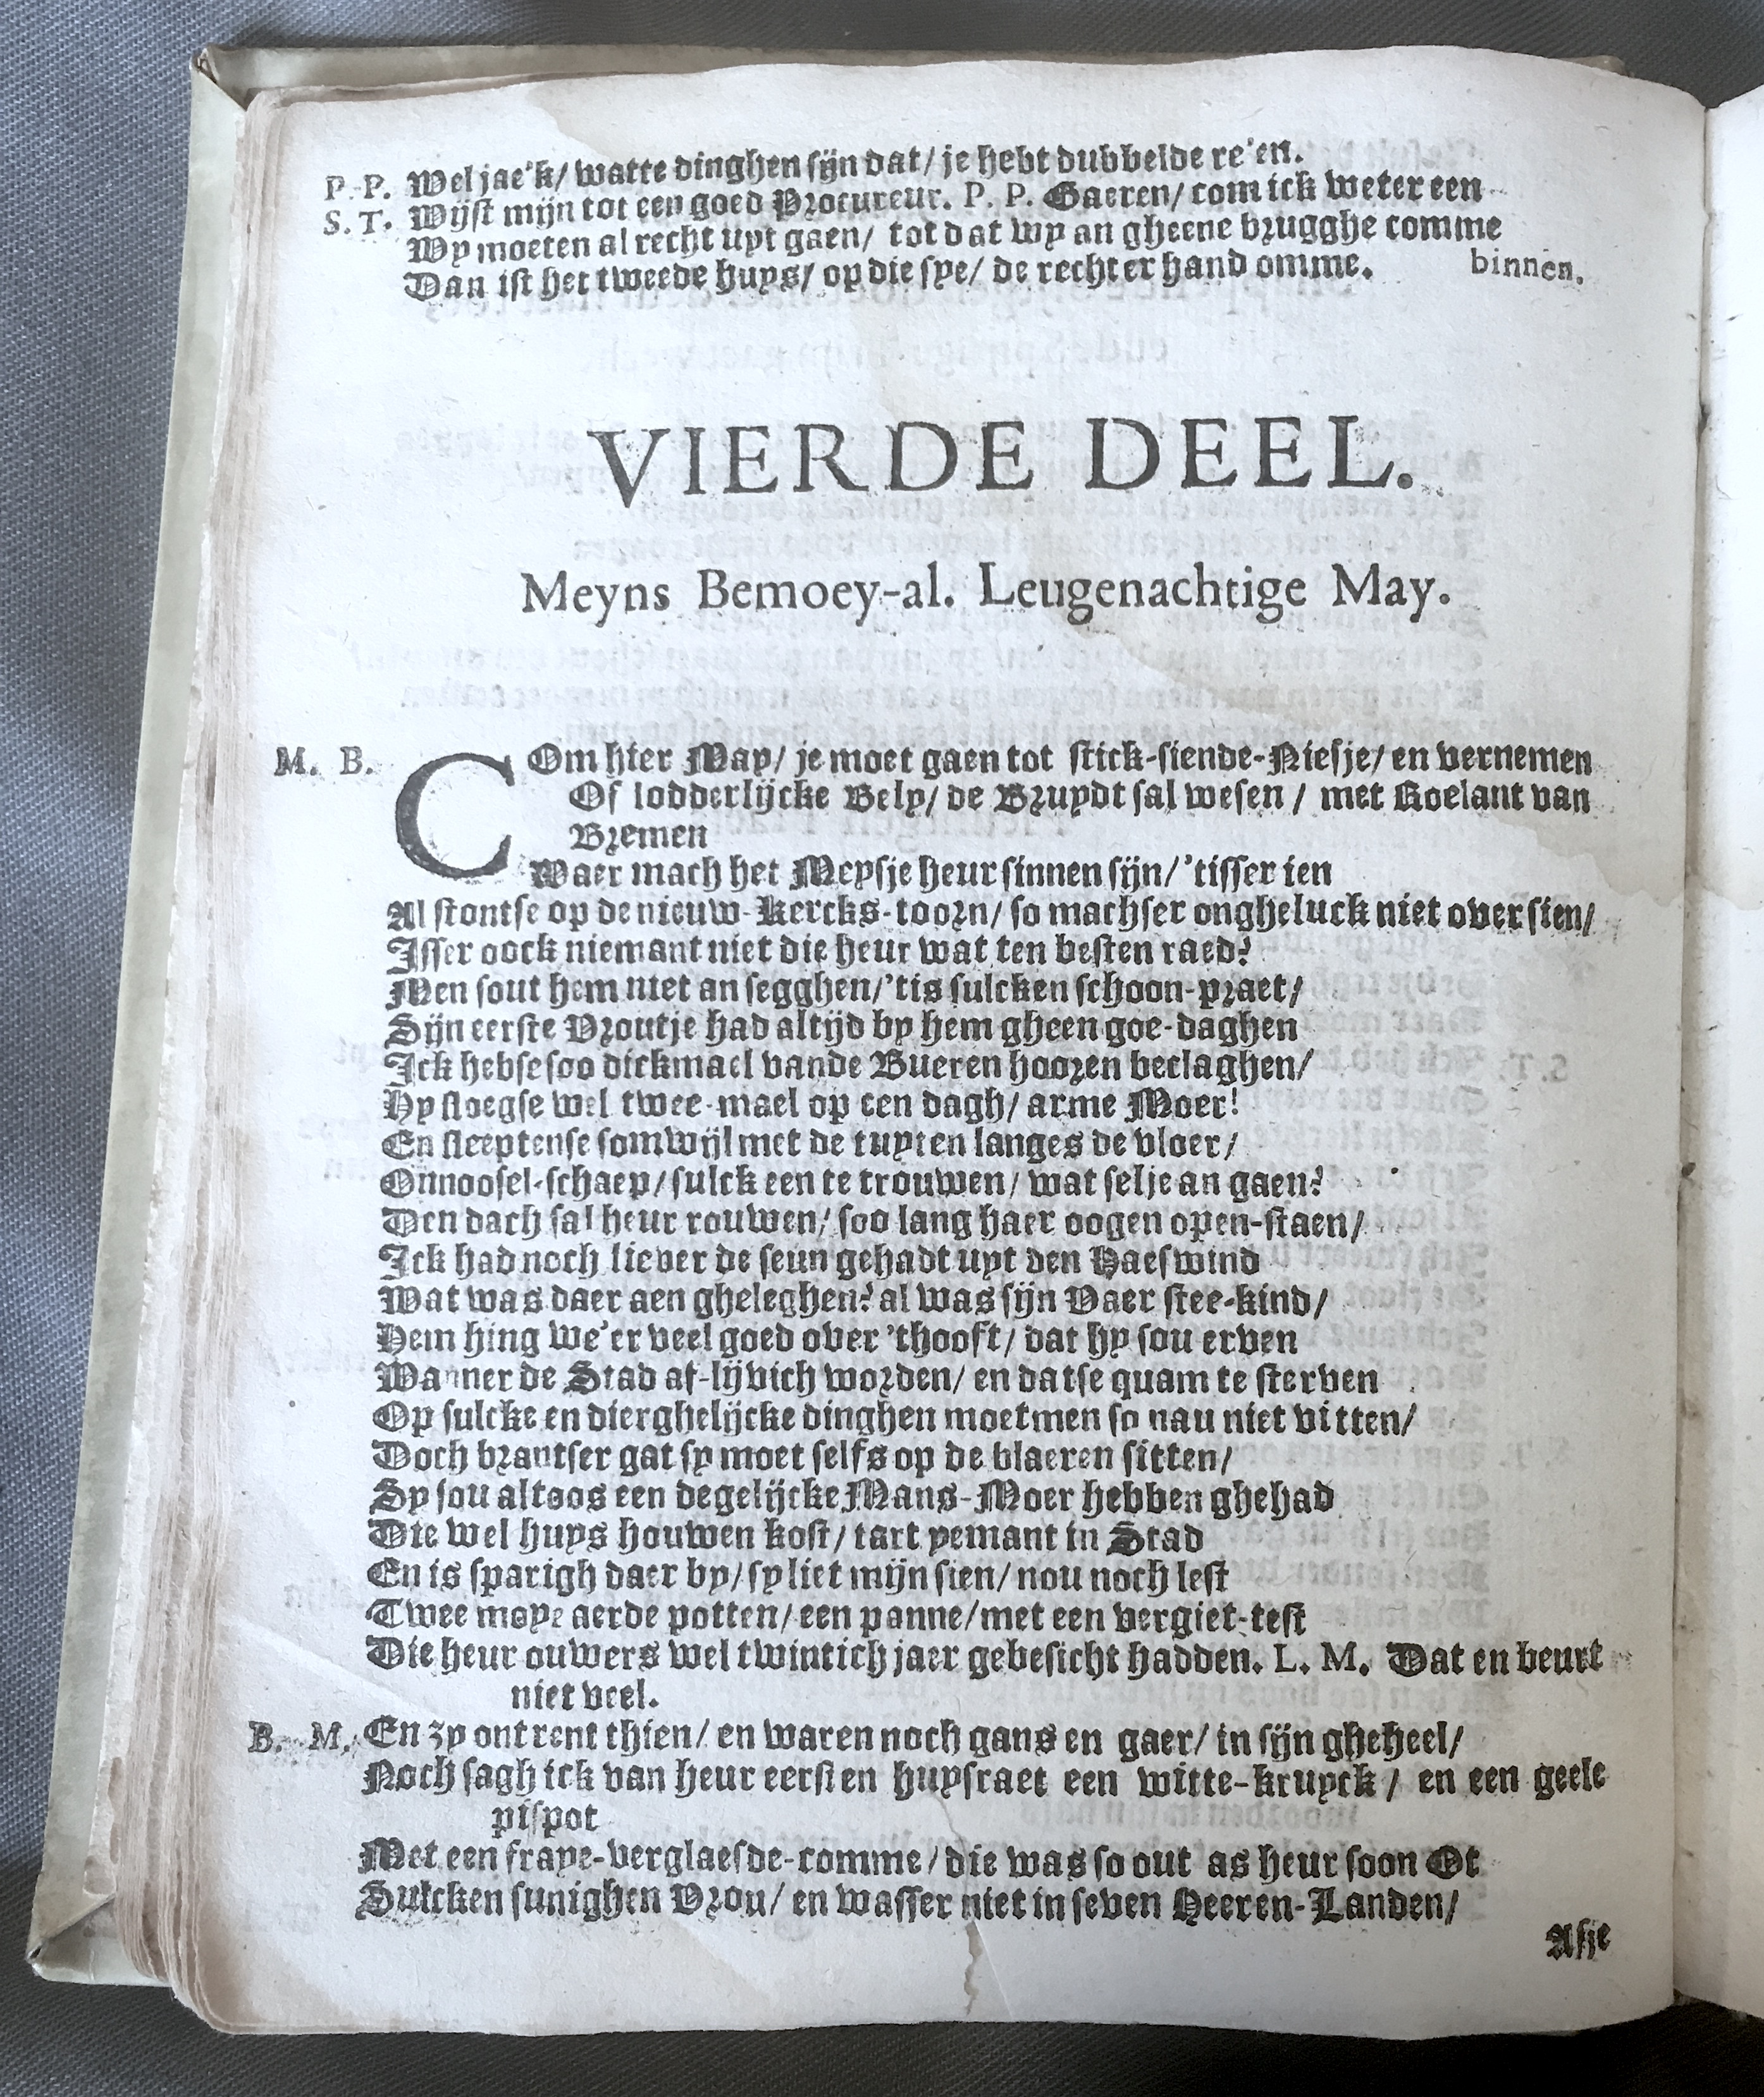 P. P. Wel jae'k/ watte dinghen sijn dat/ je hebt dubbelde re'en.
S. T. Wijst mijn tot een goed Procureur. P. P. Gaeren/ com ick weter een
Wy moeten al recht uyt gaen/ tot dat wy an gheene brugghe comme
binnen.
Dan ist het tweede huys/ op die sye/ de rechter hand omme.
VIERDE DEEL.
Meyns Bemoey-al. Leugenachtige May.
M. B. COm hier May/ je moet gaen tot stick-siende-Niesje/ en vernemen
Of lodderlijcke Bely/ de Bruydt sal wesen / met Roelant van
Bremen
Waer mach het Meysje heur sinnen sijn/ 'tisser ien
Al stontse op de nieuw-Kercks-toorn/ so machser ongheluck niet over sien/
Isser oock niemant niet die heur wat ten besten raed?
Men sout hem niet an segghen/ 'tis sulcken schoon-praet/
Sijn eerste Vroutje had altijd by hem gheen goe-daghen
Ick hebse soo dickmael vande Bueren hooren beclaghen/
Hy sloegse wel twee-mael op een dagh/ arme Moer!
En sleeptense somwijl met de tuyten langes de vloer/
Onnoosel-schaep/ sulck een te trouwen/ wat selje an gaen?
Den dach sal heur rouwen/ soo lang haer oogen open-staen/
Ick had noch liever de seun gehadt uyt den Haeswind
Wat was daer aen gheleghen? al was sijn Vaer stee-kind/
Hem hing we'er veel goed over 'thooft/ dat hy sou erven
Wanner de Stad af-lijvich worden/ en datse quam te sterven
Op sulcke en dierghelijcke dinghen moetmen so nau niet vitten/
Doch brantser gat sy moet selfs op de blaeren sitten/
Sy sou altoos een degelijcke Mans-Moer hebben ghehad
Die wel huys houwen kost/ tart yemant in Stad
En is sparigh daer by/ sy liet mijn sien/ nou noch lest
Twee moye aerde potten/ een panne/ met een vergiet-test
Die heur ouwers wel twintich jaer gebesicht hadden. L. M. Dat en beurt
niet veel.
B. M. En zy ontrent thien/ en waren noch gans en gaer/ in sijn gheheel/
Noch sagh ick van heur eersten huysraet een witte-kruyck / en een geele
pispot
Met een fraye-verglaesde-comme/ die was so out as heur soon Ot
Sulcken sunighen Vrou/ en wasser niet in seven Heeren-Landen/
Asje